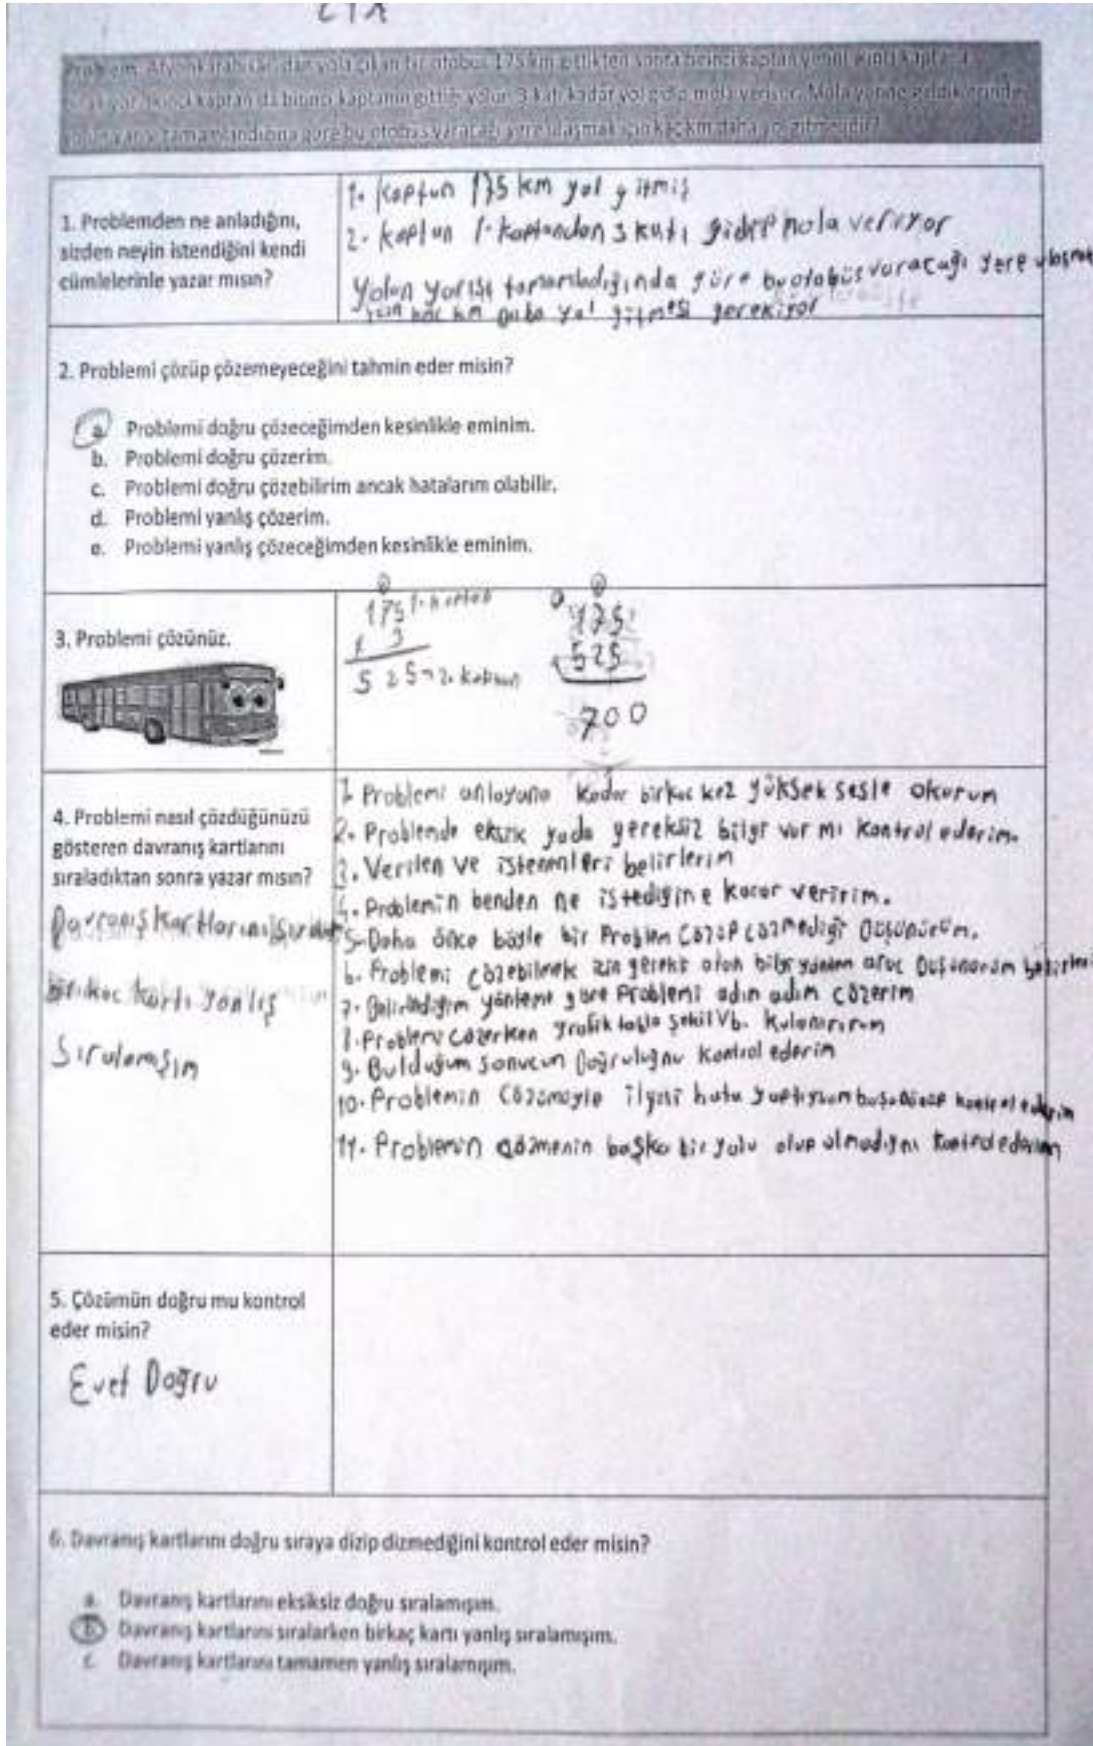 Problem: Afyonkarahisar'dan yola çıkan bir otobüs 175 km gittikten sonra birinci kaptan yerini ikinci kaptana
bırakıyor. İkinci kaptan da birinci kaptanın gittiği yolun 3 katı kadar yol gidip mola veriyor. Mola yerine geldiklerinde
yolun yarısı tamamlandığına göre bu otobüs varacağı yere ulaşmak için kaç km daha yol gitmelidir?
1. Problemden ne anladığını,
sizden neyin istendiğini kendi
cümlelerinle yazar mısın?
1. Kaptan 175 km yol gitmiş
2. kaptan 1. kaptandan 3 katı gidip mola veriyor
Yolun yarısı tamamladığında göre bu otobüs varacağı yere
için kaç km daha yol gitmesi gerekiyor
2. Problemi çözüp çözemeyeceğini tahmin eder misin?
a. Problemi doğru çözeceğimden kesinlikle eminim.
b. Problemi doğru çözerim.
c. Problemi doğru çözebilirim ancak hatalarım olabilir.
d. Problemi yanlış çözerim.
e. Problemi yanlış çözeceğimden kesinlikle eminim.
3. Problemi çözünüz.
175 1. kaptan
x 3
525 → 2. kaptan
175
525
700
4. Problemi nasıl çözdüğünüzü
gösteren davranış kartlarını
sıraladıktan sonra yazar mısın?
Davranış kartlarını
birkaç kartı yanlış
Sıralamışım
1. Problemi anlayana kadar birkaç kez yüksek sesle okurum
2. Problemde eksik yada gereksiz bilgi var mı kontrol ederim.
3. Verilen ve istenenleri belirlerim
4. Problemin benden ne istediğine karar veririm.
5. Daha önce böyle bir Problem çözüp çözmediği Düşünürüm.
6. Problemi çözebilmek için gerekli olan bilgi yöntem araç Düşünürüm
7. Belirlediğim yönteme göre Problemi adın adım çözerim
8. Problemi çözerken grafik tablo Şekil Vb. kulanırım
9. Bulduğum sonucun Doğruluğnu kontrol ederim
10. Problemin çözümüyle ilgili hata yaptıysam kontrol ederim
11. Problemin çözmenin başka bir yolu olup olmadığnı kontrol ederim
5. Çözümün doğru mu kontrol
eder misin?
Evet Doğru
6. Davranış kartlarını doğru sıraya dizip dizmediğini kontrol eder misin?
a. Davranış kartlarını eksiksiz doğru sıralamışım.
b. Davranış kartlarını sıralarken birkaç kartı yanlış sıralamışım.
c. Davranış kartlarını tamamen yanlış sıralamışım.